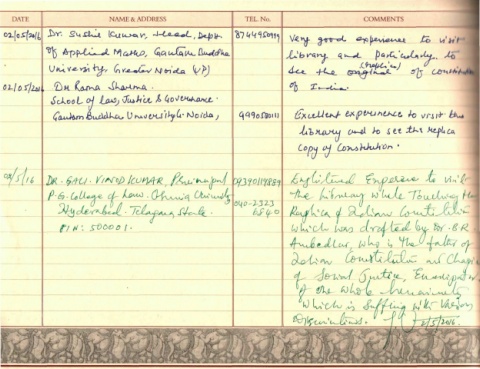 DATE NAME & ADDRESS TEL. No. COMMENTS
02/05/2016 Dr. Sushil Kumar, Head, Deptt.
of Applied Maths, Gautam Buddha
University, Greater Noida (UP)
Very good experience to visit
library and particularly to
(replica)
see the original of constitution
of India.
02/05/2016 Dr Rama Sharma.
School of Law, Justice & Governance.
Gautam Buddha University G. Noida,
Excellent experience to visit the
library and to see the replica
copy of Constitution.
02/5/16 DR. GALI. VINOD KUMAR, Principal
P.G. College of Law. University
Hyderabad. Telangana State.
PIN: 500001.
09390114889
040-2323
6840
Experience to visit
the Library while Touching the
Replica of Indian Constitution
which was drafted by Dr. BR
Ambedkar, who is the father of
Indian Constitution
of Social Justice,
of the whole
which is with Various
2/5/2016.